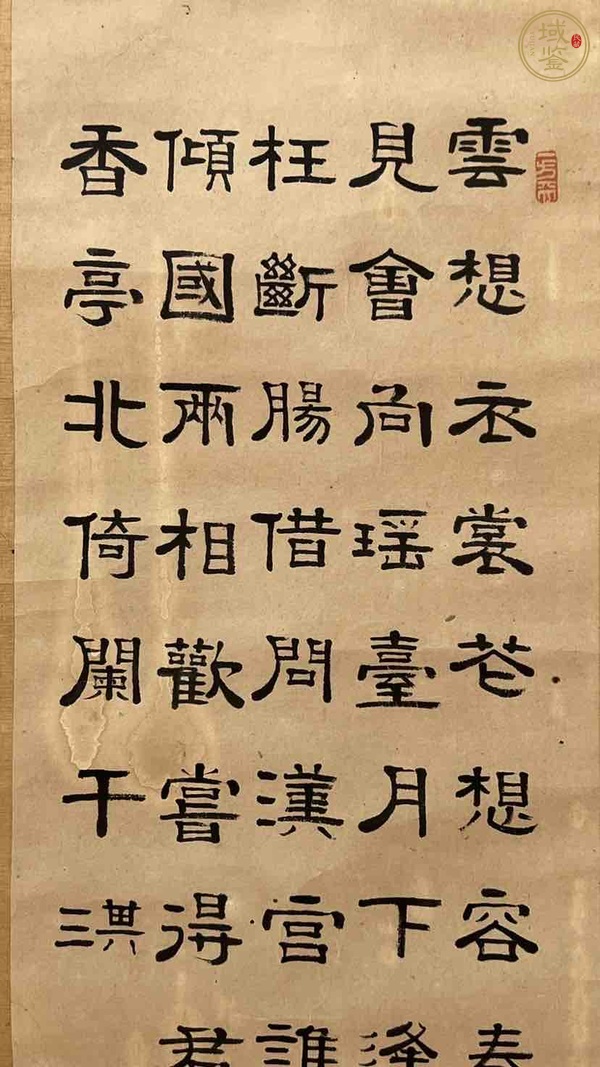 域鉴
雲想衣裳花想容春
見會向瑤臺月下逢
枉斷腸借問漢宮誰
傾國兩相歡嘗得君
香亭北倚闌干